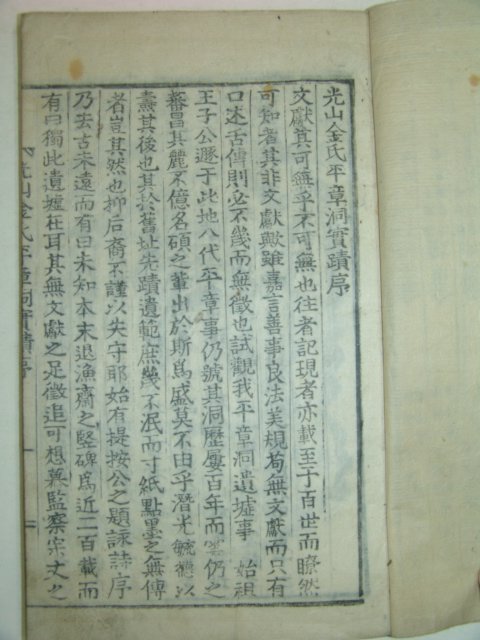 光山金氏平章洞實蹟序
文獻其可無乎不可無也往者記現者亦載至于百世而瞭然
可知者其非文獻歟雖嘉言善事良法美規苟無文獻而只有
口述舌傳則必不幾而無徵也試觀我平章洞遺墟事 始祖
王子公遯于此地八代平章事仍號其洞歷屢百年而雲仍之
蕃昌其麗不億名碩之輩出於斯爲盛莫不由乎潛光毓德以
燾其後也其於舊址先蹟遺範庶幾不泯而寸紙點墨之無傳
者豈其然也抑后裔不謹以失守耶始有提按公之題詠詩序
乃去古未遠而有曰未知本末退漁齋之竪碑爲近二百載而
有曰獨此遺墟在耳其無文獻之足徵追可想矣監察宗丈之
光山金氏平章洞實蹟序